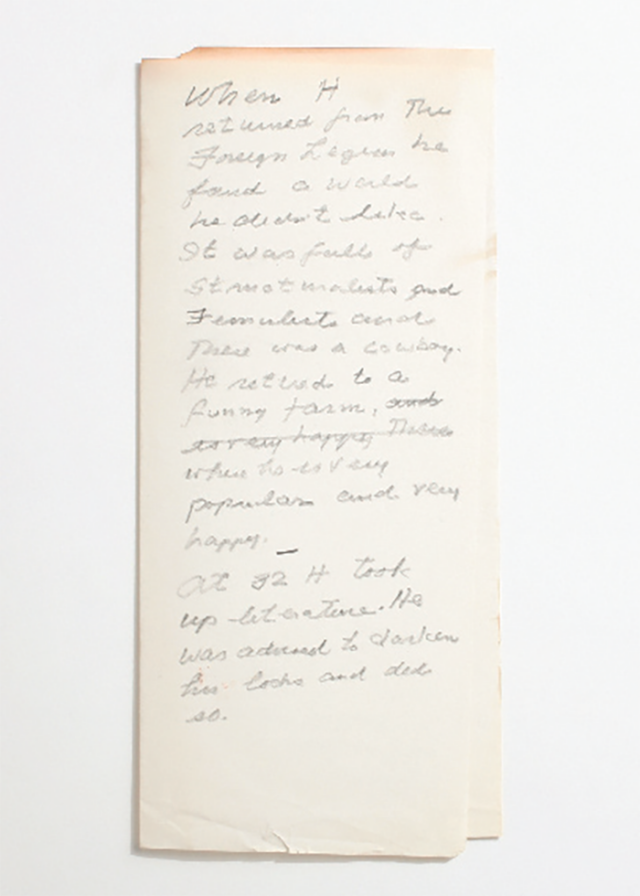 When H
returned from the
Foreign Legion he
found a world
he didn't like.
It was full of
Structuralists and
Feminists and
There was a cowboy.
He retired to a
funny farm, and
is very happy There
where he is very
popular and very
happy. —
At 32 H took
up literature. He
was advised to darken
his locks and did
so.